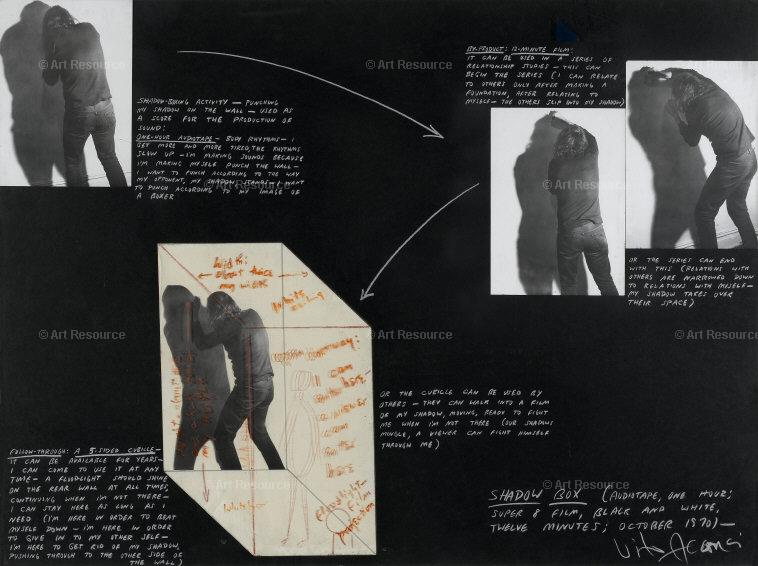 SHADOW-BOXING ACTIVITY — PUNCHING
MY SHADOW ON THE WALL — USED AS
A SCORE FOR THE PRODUCTION OF
SOUND:
ONE-HOUR AUDIOTAPE — BODY RHYTHMS — I
GET MORE AND MORE TIRED, THE RHYTHMS
SLOW UP — I'M MAKING SOUNDS BECAUSE
I'M MAKING MYSELF PUNCH THE WALL —
I WANT TO PUNCH ACCORDING TO THE WAY
MY OPPONENT, MY SHADOW, STANDS — I WANT
TO PUNCH ACCORDING TO MY IMAGE OF
A BOXER
BY-PRODUCT: 12-MINUTE FILM:
IT CAN BE USED IN A SERIES OF
RELATIONSHIP STUDIES — THIS CAN
BEGIN THE SERIES (I CAN RELATE
TO OTHERS ONLY AFTER MAKING A
FOUNDATION, AFTER RELATING TO
MYSELF — THE OTHERS SLIP INTO MY SHADOW)
OR THE SERIES CAN END
WITH THIS (RELATIONS WITH
OTHERS ARE NARROWED DOWN
TO RELATIONS WITH MYSELF —
MY SHADOW TAKES OVER
THEIR SPACE)
width:
about twice
my width
white
ceiling
can
enter
here
white
floodlight
film
projection
OR THE CUBICLE CAN BE USED BY
OTHERS — THEY CAN WALK INTO A FILM
OF MY SHADOW, MOVING, READY TO FIGHT
ME WHEN I'M NOT THERE (OUR SHADOWS
MINGLE, A VIEWER CAN FIGHT HIMSELF
THROUGH ME)
FOLLOW-THROUGH: A 5-SIDED CUBICLE —
IT CAN BE AVAILABLE FOR YEARS —
I CAN COME TO USE IT AT ANY
TIME — A FLOODLIGHT SHOULD SHINE
ON THE REAR WALL AT ALL TIMES,
CONTINUING WHEN I'M NOT THERE —
I CAN STAY HERE AS LONG AS I
NEED (I'M HERE IN ORDER TO BEAT
MYSELF DOWN — I'M HERE IN ORDER
TO GIVE IN TO MY OTHER SELF —
I'M HERE TO GET RID OF MY SHADOW,
PUSHING THROUGH TO THE OTHER SIDE OF
THE WALL)
SHADOW BOX (AUDIOTAPE, ONE HOUR;
SUPER 8 FILM, BLACK AND WHITE,
TWELVE MINUTES; OCTOBER 1970) —
Vito Acconci
© Art Resource
© Art Resource
© Art Resource
© Art Resource
© Art Resource
© Art Resource
© Art Resource
© Art Resource
© Art Resource
© Art Resource
© Art Resource
© Art Resource